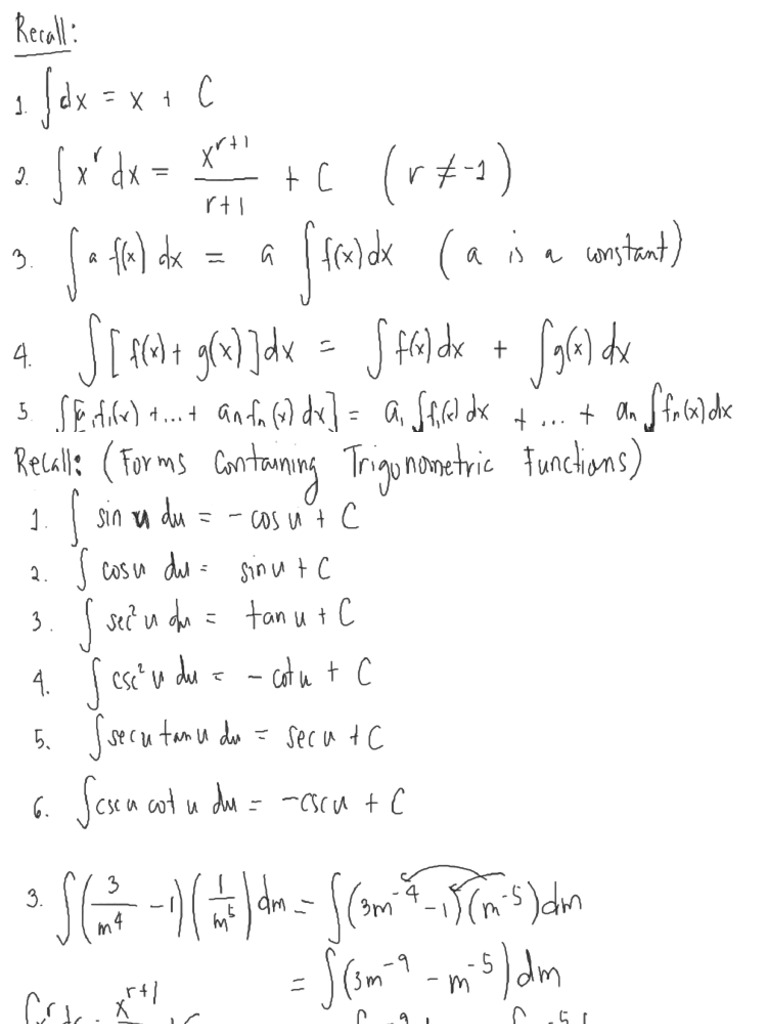 Recall:
1. ∫dx = x + C
2. ∫ x^r dx = x^(r+1)/(r+1) + C (r ≠ -1)
3. ∫ a f(x) dx = a ∫ f(x) dx (a is a constant)
4. ∫ [f(x) + g(x)] dx = ∫ f(x) dx + ∫ g(x) dx
5. ∫[a₁f₁(x) + ... + aₙfₙ(x) dx] = a₁ ∫f₁(x) dx + ... + aₙ ∫fₙ(x) dx
Recall: (Forms Containing Trigonometric Functions)
1. ∫ sin u du = - cos u + C
2. ∫ cos u du = sin u + C
3. ∫ sec² u du = tan u + C
4. ∫ csc² u du = - cot u + C
5. ∫ sec u tan u du = sec u + C
6. ∫ csc u cot u du = -csc u + C
3. ∫(3/m⁴ - 1)(1/m⁵) dm = ∫(3m⁻⁴ - 1)(m⁻⁵) dm
= ∫(3m⁻⁹ - m⁻⁵) dm
x^(r+1)